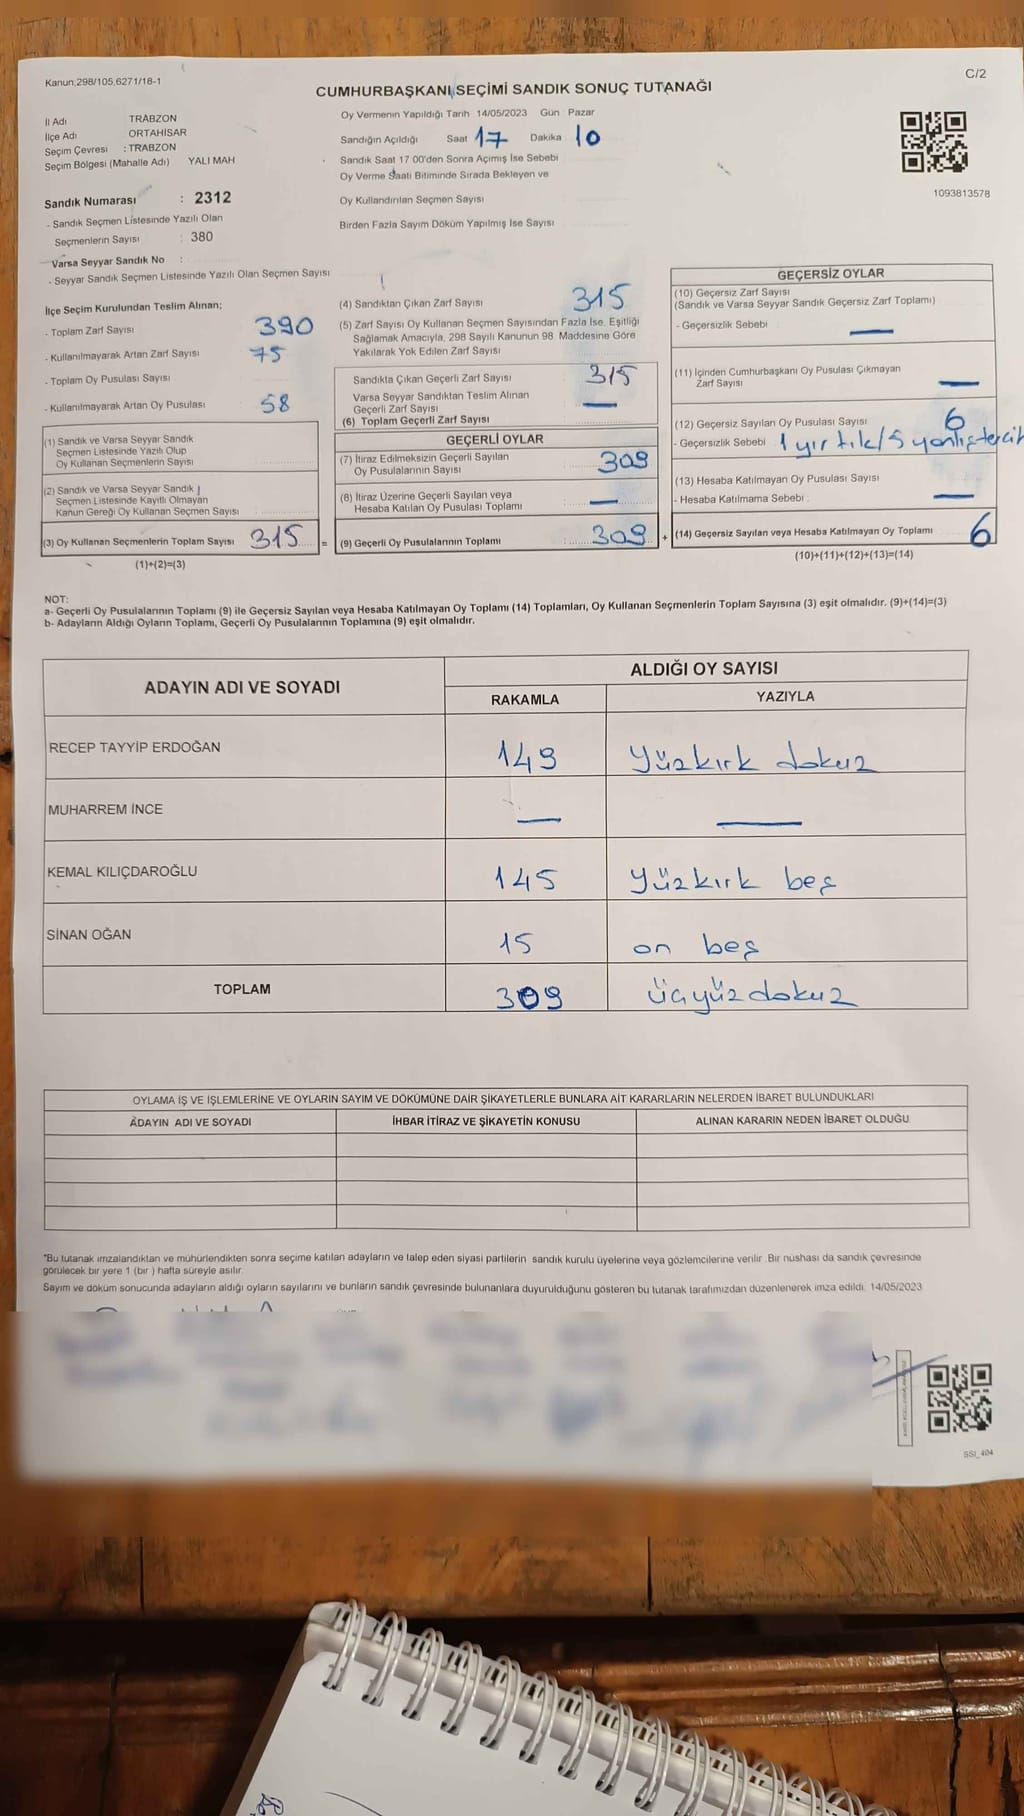 Kanun;298/105,6271/18-1
C/2
CUMHURBAŞKANI SEÇİMİ SANDIK SONUÇ TUTANAĞI
İl Adı TRABZON
İlçe Adı ORTAHİSAR
Seçim Çevresi : TRABZON
Seçim Bölgesi (Mahalle Adı) YALI MAH
Oy Vermenin Yapıldığı Tarih 14/05/2023 Gün Pazar
Sandığın Açıldığı Saat 17 Dakika 10
Sandık Saat 17 00'den Sonra Açımış İse Sebebi
Oy Verme Saati Bitiminde Sırada Bekleyen ve
Oy Kullandırılan Seçmen Sayısı
Birden Fazla Sayım Döküm Yapılmış İse Sayısı
1093813578
Sandık Numarası : 2312
- Sandık Seçmen Listesinde Yazılı Olan
Seçmenlerin Sayısı : 380
Varsa Seyyar Sandık No :
- Seyyar Sandık Seçmen Listesinde Yazılı Olan Seçmen Sayısı
İlçe Seçim Kurulundan Teslim Alınan;
- Toplam Zarf Sayısı 390
- Kullanılmayarak Artan Zarf Sayısı 75
- Toplam Oy Pusulası Sayısı
- Kullanılmayarak Artan Oy Pusulası 58
(1) Sandık ve Varsa Seyyar Sandık
Seçmen Listesinde Yazılı Olup
Oy Kullanan Seçmenlerin Sayısı
(2) Sandık ve Varsa Seyyar Sandık
Seçmen Listesinde Kayıtlı Olmayan
Kanun Gereği Oy Kullanan Seçmen Sayısı
(3) Oy Kullanan Seçmenlerin Toplam Sayısı 315 =
(1)+(2)=(3)
(4) Sandıktan Çıkan Zarf Sayısı 315
(5) Zarf Sayısı Oy Kullanan Seçmen Sayısından Fazla İse, Eşitliği
Sağlamak Amacıyla, 298 Sayılı Kanunun 98. Maddesine Göre
Yakılarak Yok Edilen Zarf Sayısı
Sandıkta Çıkan Geçerli Zarf Sayısı 315
Varsa Seyyar Sandıktan Teslim Alınan
Geçerli Zarf Sayısı —
(6) Toplam Geçerli Zarf Sayısı
GEÇERLİ OYLAR
(7) İtiraz Edilmeksizin Geçerli Sayılan
Oy Pusulalarının Sayısı 309
(8) İtiraz Üzerine Geçerli Sayılan veya
Hesaba Katılan Oy Pusulası Toplamı —
(9) Geçerli Oy Pusulalarının Toplamı 309 +
GEÇERSİZ OYLAR
(10) Geçersiz Zarf Sayısı
(Sandık ve Varsa Seyyar Sandık Geçersiz Zarf Toplamı)
- Geçersizlik Sebebi —
(11) İçinden Cumhurbaşkanı Oy Pusulası Çıkmayan
Zarf Sayısı —
(12) Geçersiz Sayılan Oy Pusulası Sayısı 6
- Geçersizlik Sebebi 1 yırtık/5 yanlış tercih
(13) Hesaba Katılmayan Oy Pusulası Sayısı
- Hesaba Katılmama Sebebi : —
(14) Geçersiz Sayılan veya Hesaba Katılmayan Oy Toplamı 6
(10)+(11)+(12)+(13)=(14)
NOT:
a- Geçerli Oy Pusulalarının Toplamı (9) ile Geçersiz Sayılan veya Hesaba Katılmayan Oy Toplamı (14) Toplamları, Oy Kullanan Seçmenlerin Toplam Sayısına (3) eşit olmalıdır. (9)+(14)=(3)
b- Adayların Aldığı Oyların Toplamı, Geçerli Oy Pusulalarının Toplamına (9) eşit olmalıdır.
ADAYIN ADI VE SOYADI
ALDIĞI OY SAYISI
RAKAMLA YAZIYLA
RECEP TAYYİP ERDOĞAN 149 Yüzkırk dokuz
MUHARREM İNCE — —
KEMAL KILIÇDAROĞLU 145 Yüzkırk beş
SİNAN OĞAN 15 on beş
TOPLAM 309 üçyüzdokuz
OYLAMA İŞ VE İŞLEMLERİNE VE OYLARIN SAYIM VE DÖKÜMÜNE DAİR ŞİKAYETLERLE BUNLARA AİT KARARLARIN NELERDEN İBARET BULUNDUKLARI
ADAYIN ADI VE SOYADI İHBAR İTİRAZ VE ŞİKAYETİN KONUSU ALINAN KARARIN NEDEN İBARET OLDUĞU
*Bu tutanak imzalandıktan ve mühürlendikten sonra seçime katılan adayların ve talep eden siyasi partilerin sandık kurulu üyelerine veya gözlemcilerine verilir. Bir nüshası da sandık çevresinde
görülecek bir yere 1 (bir ) hafta süreyle asılır.
Sayım ve döküm sonucunda adayların aldığı oyların sayılarını ve bunların sandık çevresinde bulunanlara duyurulduğunu gösteren bu tutanak tarafımızdan düzenlenerek imza edildi. 14/05/2023
SSI_404